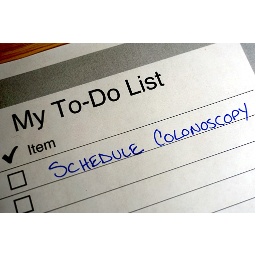 My To-Do List
✓ Item
SCHEDULE COLONOSCOPY